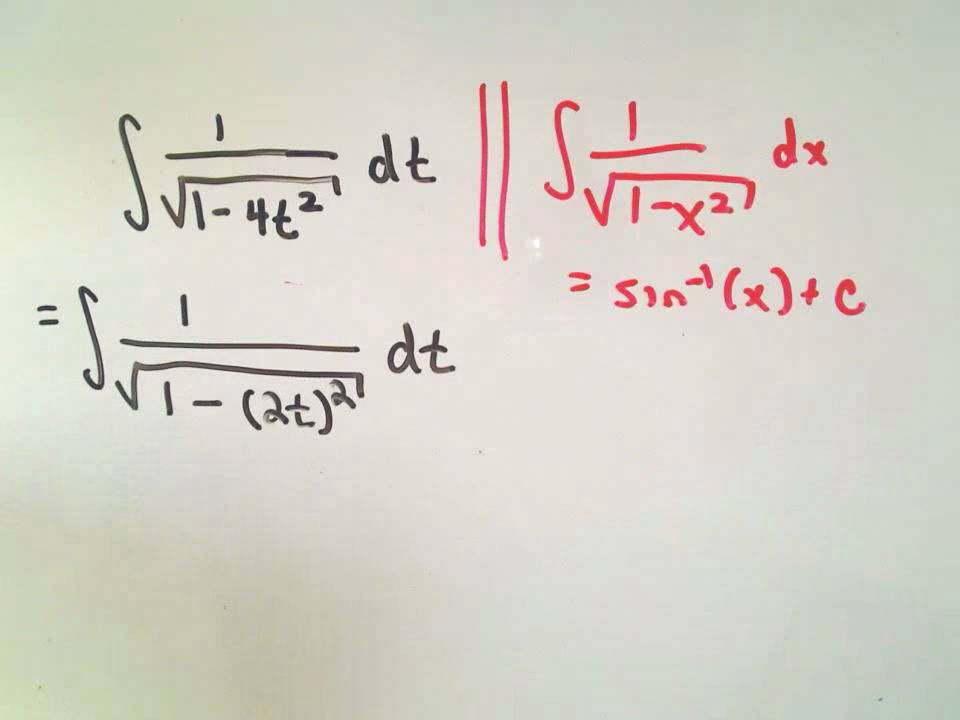 ∫ 1/√(1-4t²) dt
= ∫ 1/√(1-(2t)²) dt
∫ 1/√(1-x²) dx
= sin⁻¹(x) + C